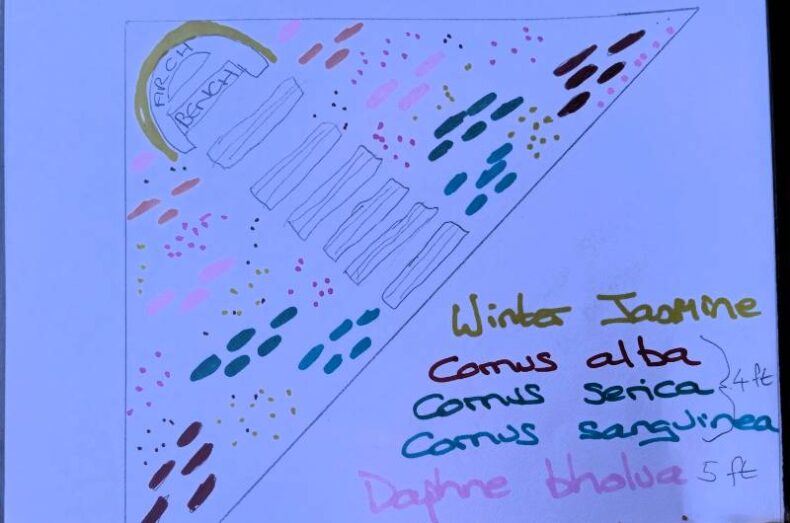 ARCH
BENCH
Winter Jasmine
Cornus alba
Cornus serica 4 ft
Cornus sanguinea
Daphne bholua 5 ft